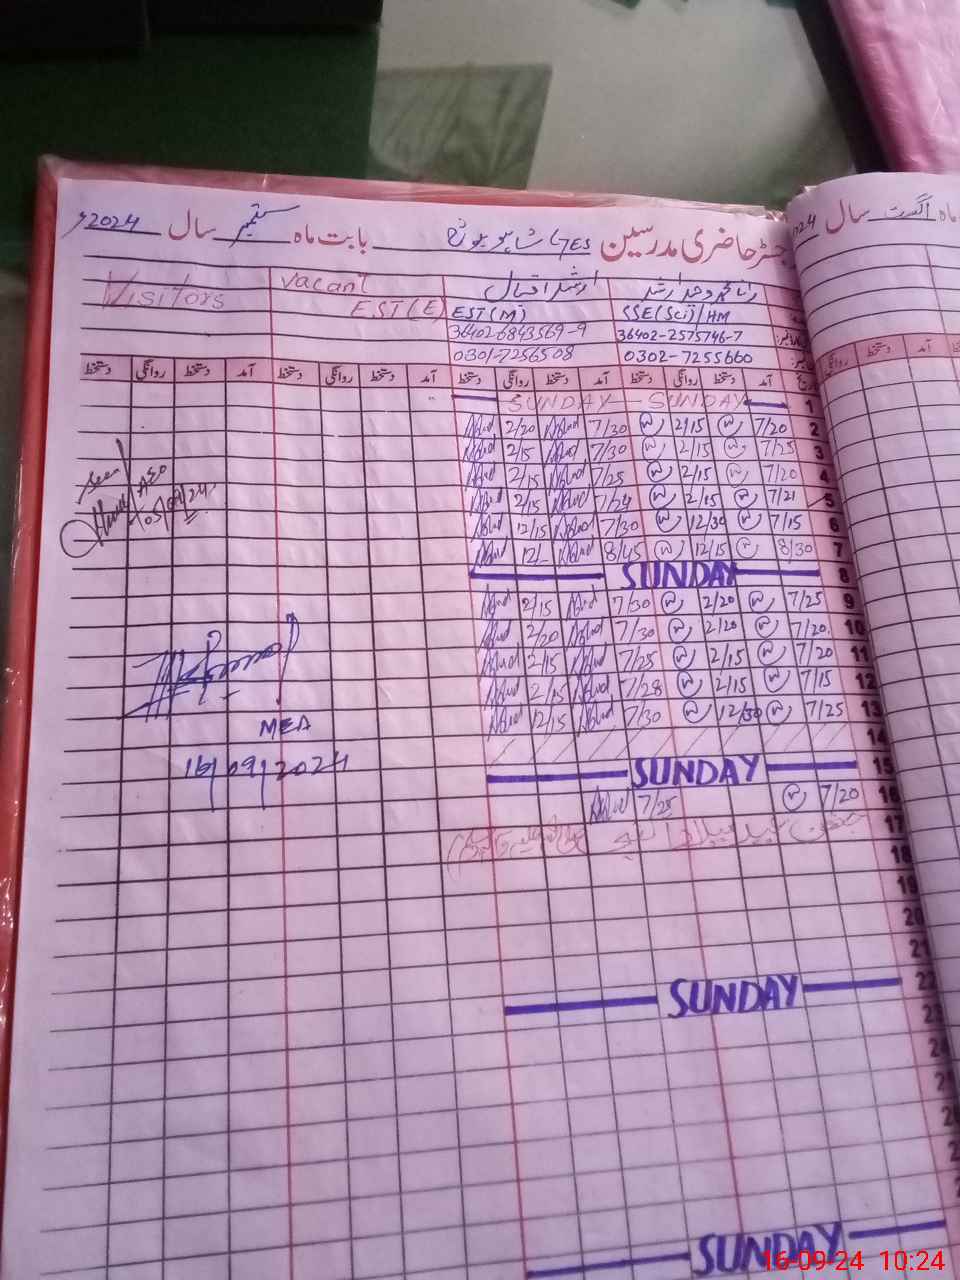 رجسٹر حاضری مدرسین GES بابت ماہ ستمبر سال 2024ء
ماہ اگست سال
Visitors
vacant
ارشد اقبال
EST(E)
EST(M)
SSE(Sci)/HM
36402-6843569-9
36402-2575746-7
0301-7256508
0302-7255660
دستخط روانگی دستخط آمد دستخط روانگی دستخط آمد دستخط روانگی دستخط آمد دستخط روانگی دستخط آمد
SUNDAY SUNDAY 1
2/20 7/30 2/15 7/20 2
2/15 7/30 2/15 7/25 3
2/15 7/25 2/15 7/20 4
2/15 7/24 2/15 7/21 5
12/15 7/30 12/30 7/15 6
12/- 8/45 12/15 8/30 7
SUNDAY 8
2/15 7/30 2/20 7/25 9
2/20 7/30 2/20 7/20 10
2/15 7/25 2/15 7/20 11
2/15 7/28 2/15 7/15 12
12/15 7/30 12/30 7/25 13
14
SUNDAY 15
7/25 7/20 16
17
18
19
20
21
SUNDAY 22
23
24
SUNDAY
seen
AEO
05/09/24
MEA
16/09/2024
16-09-24 10:24